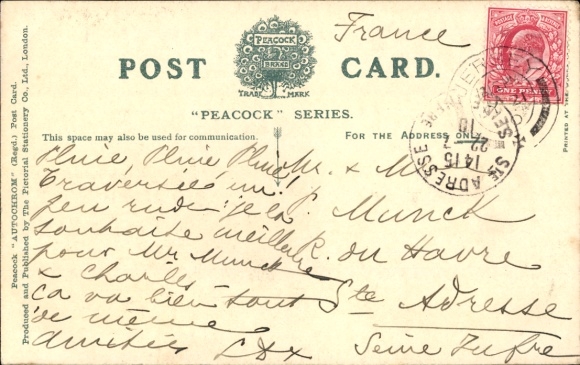 France
PEACOCK
BRAND
TRADE MARK
POST CARD.
"PEACOCK" SERIES.
This space may also be used for communication.
FOR THE ADDRESS ONLY
Pluie, Pluie Pluie!
Traversée un
peu rude je la
souhaite meilleure
pour Mr Munck
& Charles
ça va bien tout
de même
amitiés
Mr. & M
Munck
R. du Havre
Ste Adresse
Seine Infre
POSTAGE
ONE PENNY
STE ADRESSE
SEINE
1415
22
10
Peacock "AUTOCHROM" (Regd.) Post Card.
Produced and Published by The Pictorial Stationery Co., Ltd., London.